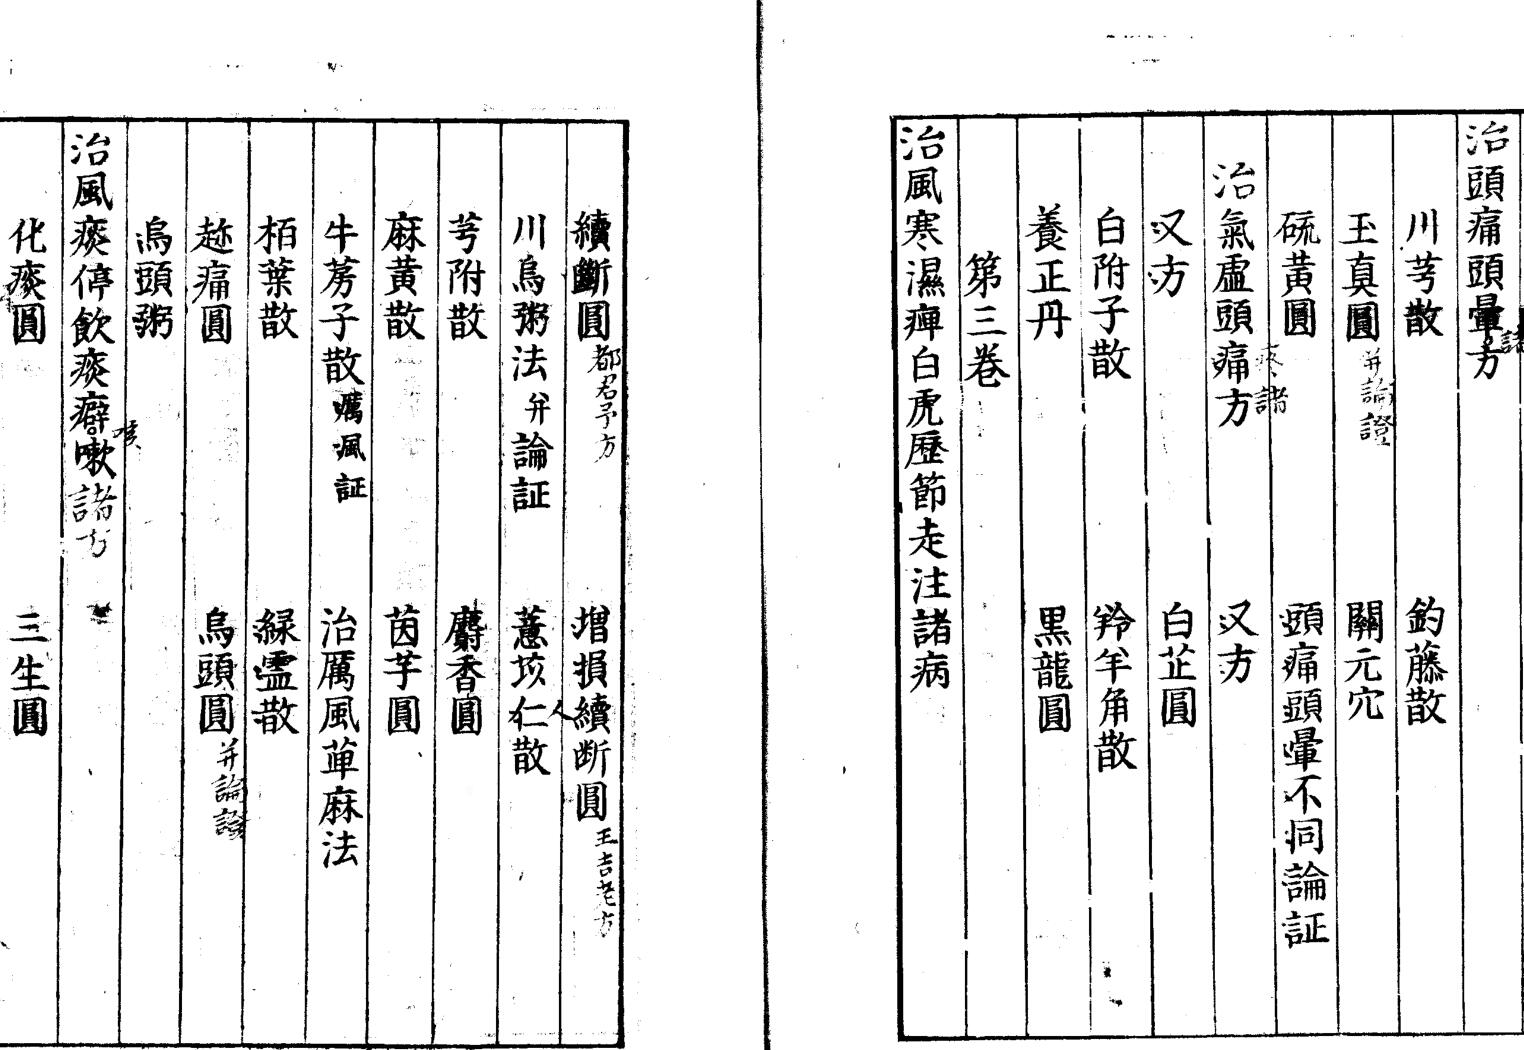 治頭痛頭暈諸方
川芎散　釣藤散
玉真圓并論證　關元穴
硫黃圓　頭痛頭暈不同論証
治氣虛頭痛疼諸方　又方
又方　白芷圓
白附子散　羚羊角散
養正丹　黑龍圓
第三卷
治風寒濕痺白虎歷節走注諸病
續斷圓都君予方　增損續断圓王吉老方
川烏粥法并論証　薏苡仁散
芎附散　麝香圓
麻黃散　茵芋圓
牛蒡子散癘風証　治厲風萆麻法
栢葉散　綠雲散
趂痛圓　烏頭圓并論證
烏頭粥
治風痰停飲痰癖咳嗽諸方
化痰圓　三生圓